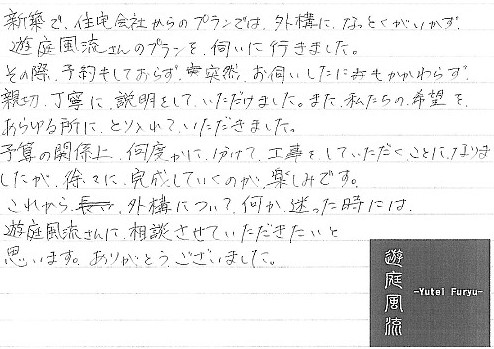 新築で、住宅会社からのプランでは、外構に、なっとくがいかず、
遊庭風流さんのプランを、伺いに行きました。
その際、予約もしておらず、突然、お伺いしたにもかかわらず、
親切、丁寧に、説明をして、いただけました。また、私たちの、希望を、
あらゆる所に、とり入れて、いただきました。
予算の関係上、何度かに、分けて、工事を、していただくことになりま
したが、徐々に、完成していくのが、楽しみです。
これから、外構について、何か、迷った時には、
遊庭風流さんに、相談させていただきたいと
思います。ありがとうございました。
遊庭風流
-Yutei Furyu-